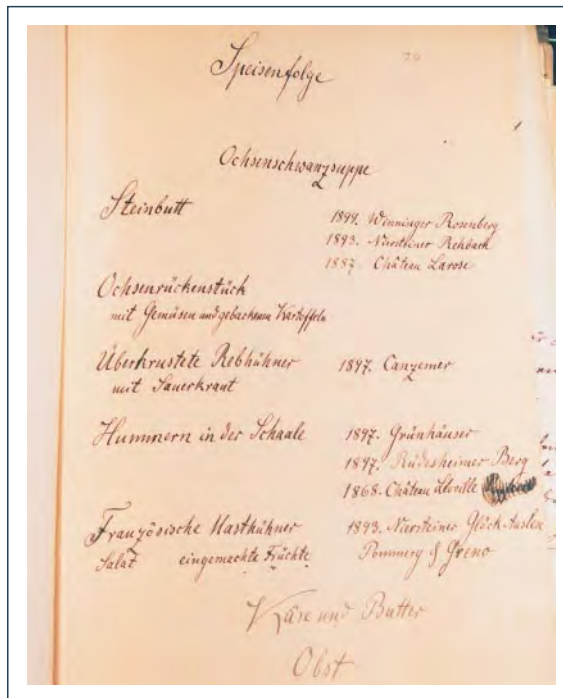 Speisenfolge 20
Ochsenschwanzsuppe
Steinbutt
1899. Winninger Rosenberg
1893. Niersteiner Rehbach
1887. Château Larose
Ochsenrückenstück
mit Gemüsen und gebackenen Kartoffeln
Überkrustete Rebhühner 1897. Canzemer
mit Sauerkraut
Hummern in der Schaale 1897. Grünhäuser
1897. Rüdesheimer Berg
1868. Château Léoville
Französische Masthühner 1893. Niersteiner Glöck Auslese
Salat eingemachte Früchte Pommery & Greno
Käse und Butter
Obst